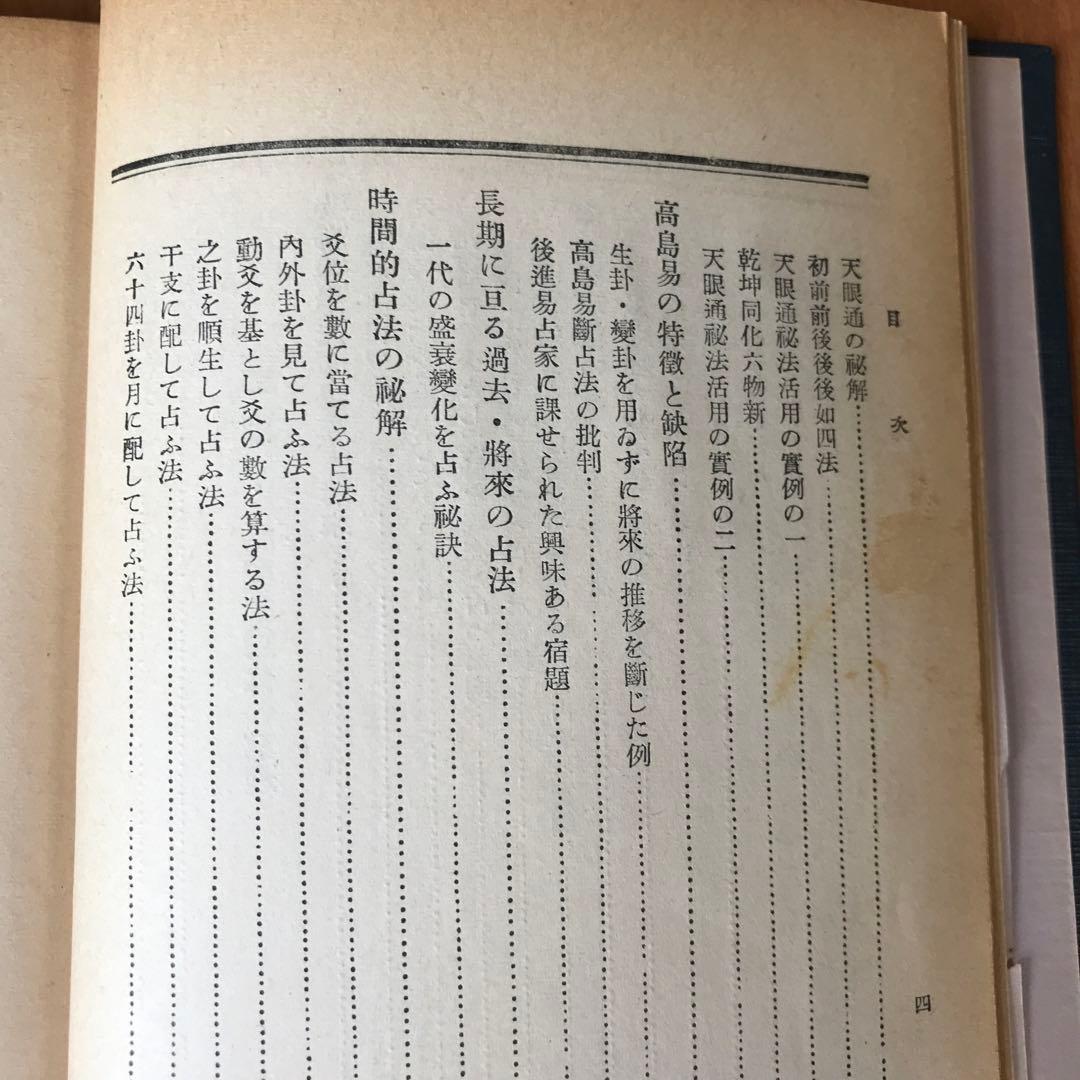 目次
天眼通の祕解
初前前後後後如四法
天眼通祕法活用の實例の一
乾坤同化六物新
天眼通祕法活用の實例の二
高島易の特徴と缺陷
生卦・變卦を用ゐずに將來の推移を斷じた例
高島易斷占法の批判
後進易占家に課せられた興味ある宿題
長期に亘る過去・將來の占法
一代の盛衰變化を占ふ祕訣
時間的占法の祕解
爻位を數に當てる占法
內外卦を見て占ふ法
動爻を基とし爻の數を算する法
之卦を順生して占ふ法
干支に配して占ふ法
六十四卦を月に配して占ふ法
四